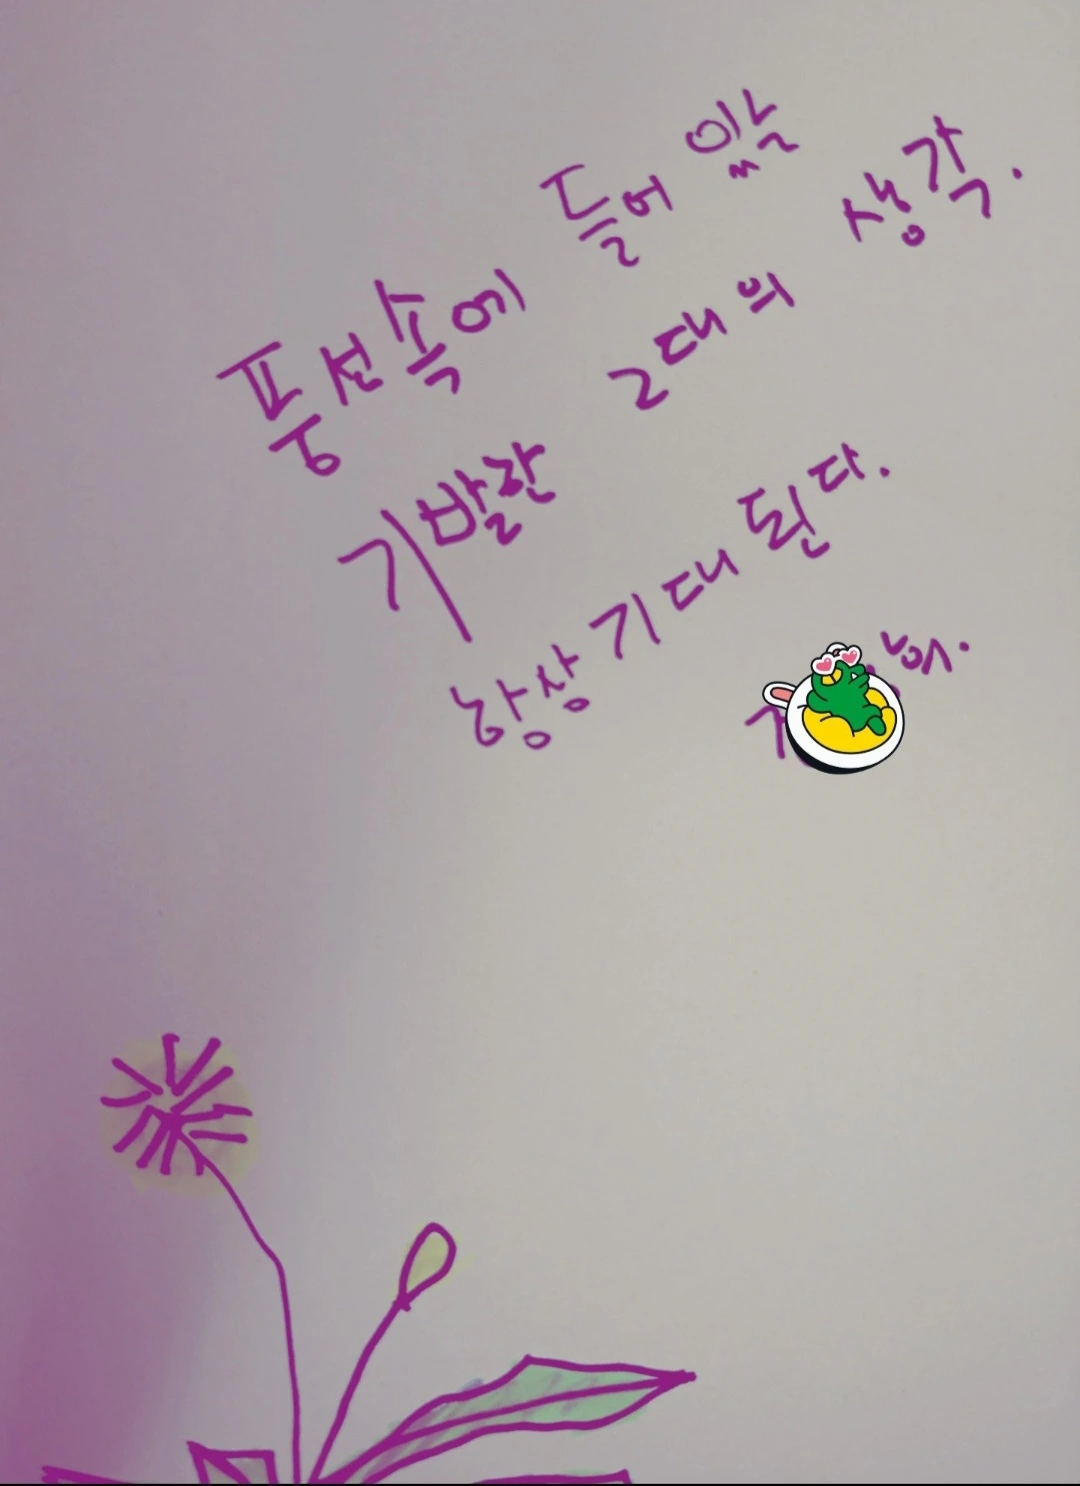 풍선속에 들어 있을
기발한 그대의 생각.
항상 기대 된다.